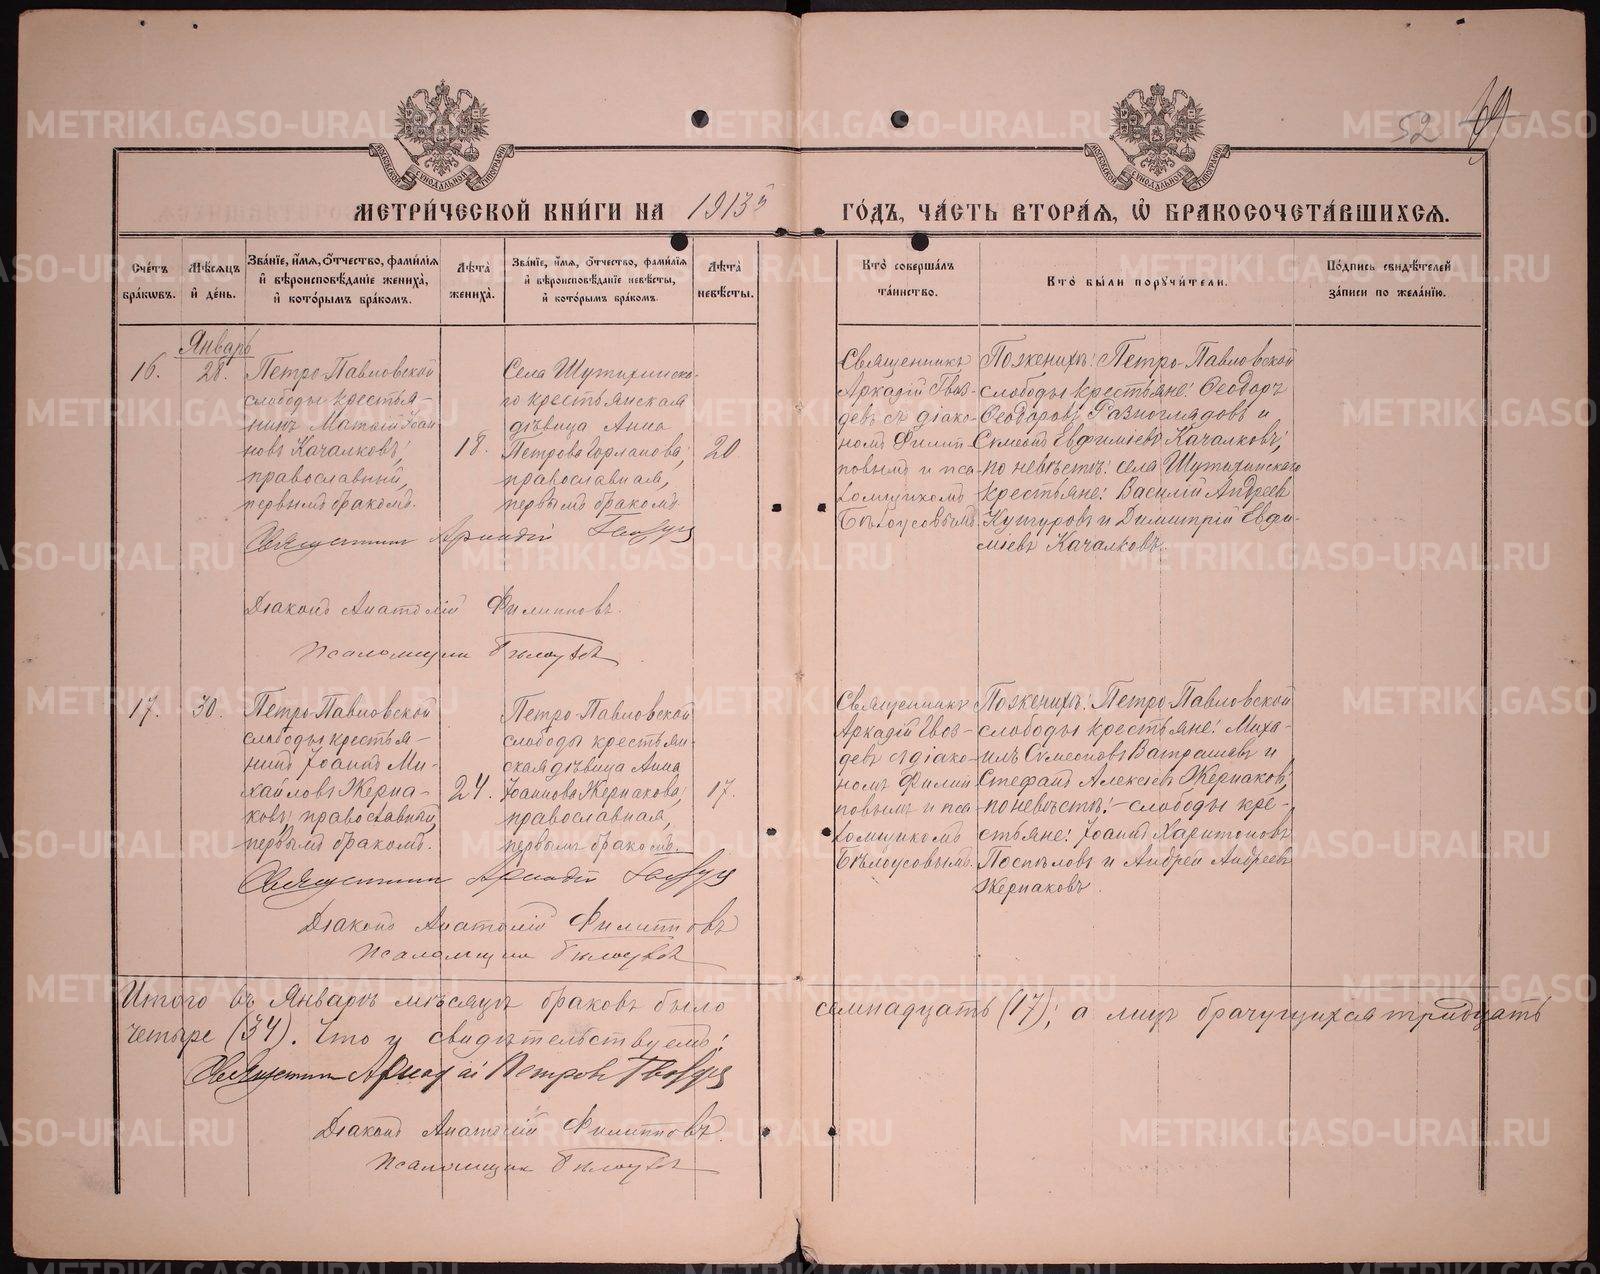 52
МЕТРИ́ЧЕСКОЙ КНИ́ГИ НА 1913й ГО́ДЪ, ЧА́СТЬ ВТОРА́Я, Ѡ БРАКОСОЧЕТА́ВШИХСЯ.
Сче́тъ бра́ковъ.
Мѣ́сяцъ и де́нь.
Зва́нїе, и́мя, о́тчество, фами́лїя и вѣроисповѣ́данїе жениха̀, и кото́рымъ бра́комъ.
Лѣ́та жениха̀.
Зва́нїе, и́мя, о́тчество, фами́лїя и вѣроисповѣ́данїе невѣ́сты, и кото́рымъ бра́комъ.
Лѣ́та невѣ́сты.
Кто̀ соверша́лъ та́инство.
Кто̀ бы́ли поручи́тели.
По́дпись свидѣ́телей за́писи по жела́нїю.
Январь
16.
28.
Петро-Павловской
слободы крестья-
нинъ Матѳій Іоан-
новъ Качалковъ,
православный,
первымъ бракомъ.
18.
Села Шутихинска-
го крестьянская
дѣвица Анна
Петрова Горланова,
православная,
первымъ бракомъ
20
Священникъ
Аркадій Гвоз-
девъ съ діако-
номъ Филип-
повымъ и пса-
ломщикомъ
Бѣлоусовымъ
По женихѣ: Петро-Павловской
слободы крестьяне: Ѳеодоръ
Ѳеодоровъ Разноглядовъ и
Сѵмеонъ Евфиміевъ Качалковъ;
по невѣстѣ: села Шутихинскаго
крестьяне: Василій Андреевъ
Кунгуровъ и Димитрій Евфи-
міевъ Качалковъ.
Священникъ Аркадій Гвоздевъ
Діаконъ Анатолій Филипповъ.
Псаломщикъ Бѣлоусовъ
17.
30.
Петро-Павловской
слободы крестья-
нинъ Іоаннъ Ми-
хайловъ Жерна-
ковъ, православный,
первымъ бракомъ.
24.
Петро-Павловской
слободы крестьян-
ская дѣвица Анна
Іоаннова Жернакова,
православная,
первымъ бракомъ.
17.
Священникъ
Аркадій Гвоз-
девъ съ діако-
номъ Филип-
повымъ и пса-
ломщикомъ
Бѣлоусовымъ.
По женихѣ: Петро-Павловской
слободы крестьяне: Миха-
илъ Сѵмеоновъ Ватрашевъ и
Стефанъ Алексіевъ Жернаковъ;
по невѣстѣ: слободы кре-
стьяне: Іоаннъ Харитоновъ
Поспѣловъ и Андрей Андреевъ
Жернаковъ.
Священникъ Аркадій Гвоздевъ
Діаконъ Анатолій Филипповъ
Псаломщикъ Бѣлоусовъ
Итого въ Январѣ мѣсяцѣ браковъ было семнадцать (17); а лицъ брачущихся тридцать
четыре (34). Что и свидѣтельствуемъ:
Священникъ Аркадій Петровъ Гвоздевъ
Діаконъ Анатолій Филипповъ.
Псаломщикъ Бѣлоусовъ
METRIKI.GASO-URAL.RU